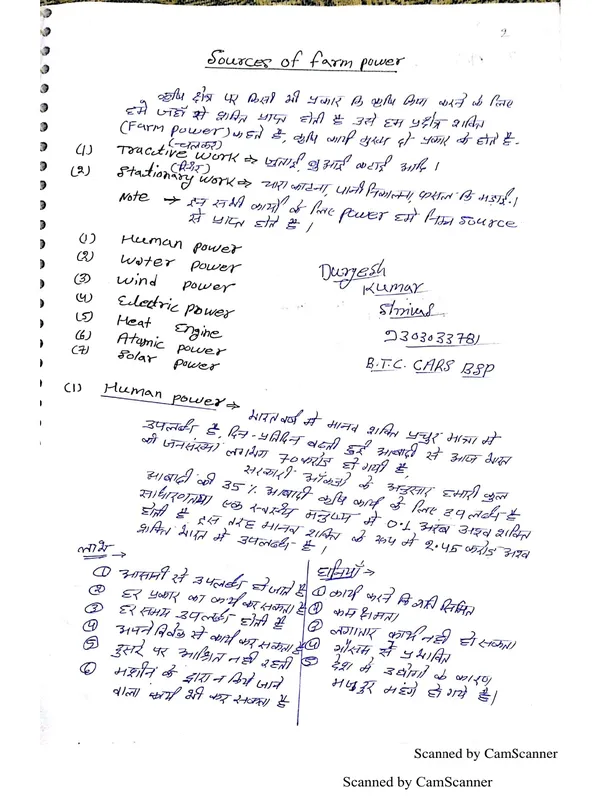 2
Sources of farm power
कृषि क्षेत्र पर किसी भी प्रकार कि कृषि क्रिया करने के लिए
हमे जहाँ से शक्ति प्राप्त होती है उसे हम प्रक्षेत्र शक्ति
(Farm power) कहते है, कृषि कार्य मुख्य दो प्रकार के होते है-
(1) Tractive work → जुताई, बुआई कटाई आदि।
(2) Stationary work → चारा काटना, पानी निकालना, फसल कि मडाई।
(स्थिर)
Note → इन सभी कार्यो के लिए power हमे निम्न source
से प्राप्त होते है।
(1) Human power
(2) Water power
(3) Wind power
(4) Electric power
(5) Heat Engine
(6) Atomic power
(7) Solar power
Durgesh
Kumar
Shrivas
2303033781
B.T.C. CARS BSP
(1) Human power →
भारत वर्ष मे मानव शक्ति प्रचुर मात्रा मे
उपलब्ध है, दिन-प्रतिदिन बढती हुई आबादी से आज भारत
की जनसंख्या लगभग 70 करोड हो गयी है
सरकारी आँकडो के अनुसार हमारी कुल
आबादी की 35% आबादी कृषि कार्य के लिए उपलब्ध है
साधारणतया एक स्वस्थ्य मनुष्य मे 0.1 अश्व शक्ति
होती है इस तरह मानव शक्ति के रूप मे 2.45 करोड अश्व
शक्ति भारत मे उपलब्ध है।
लाभ →
① आसानी से उपलब्ध हो जाते है
② हर प्रकार का कार्य कर सकता है
③ हर समय उपलब्ध होती है
④ अपने विवेक से कार्य कर सकता है
⑤ दुसरे पर आश्रित नही रहती
⑥ मशीन के द्वारा न किये जाने
वाला कार्य भी कर सकता है
हानियाँ →
① कार्य करने कि गति सिमित
② कम क्षमता
③ लगातार कार्य नही हो सकता
④ मौसम से प्रभावित
⑤ देश मे उद्योगो के कारण
मजदुर महंगे हो गये है।
Scanned by CamScanner
Scanned by CamScanner